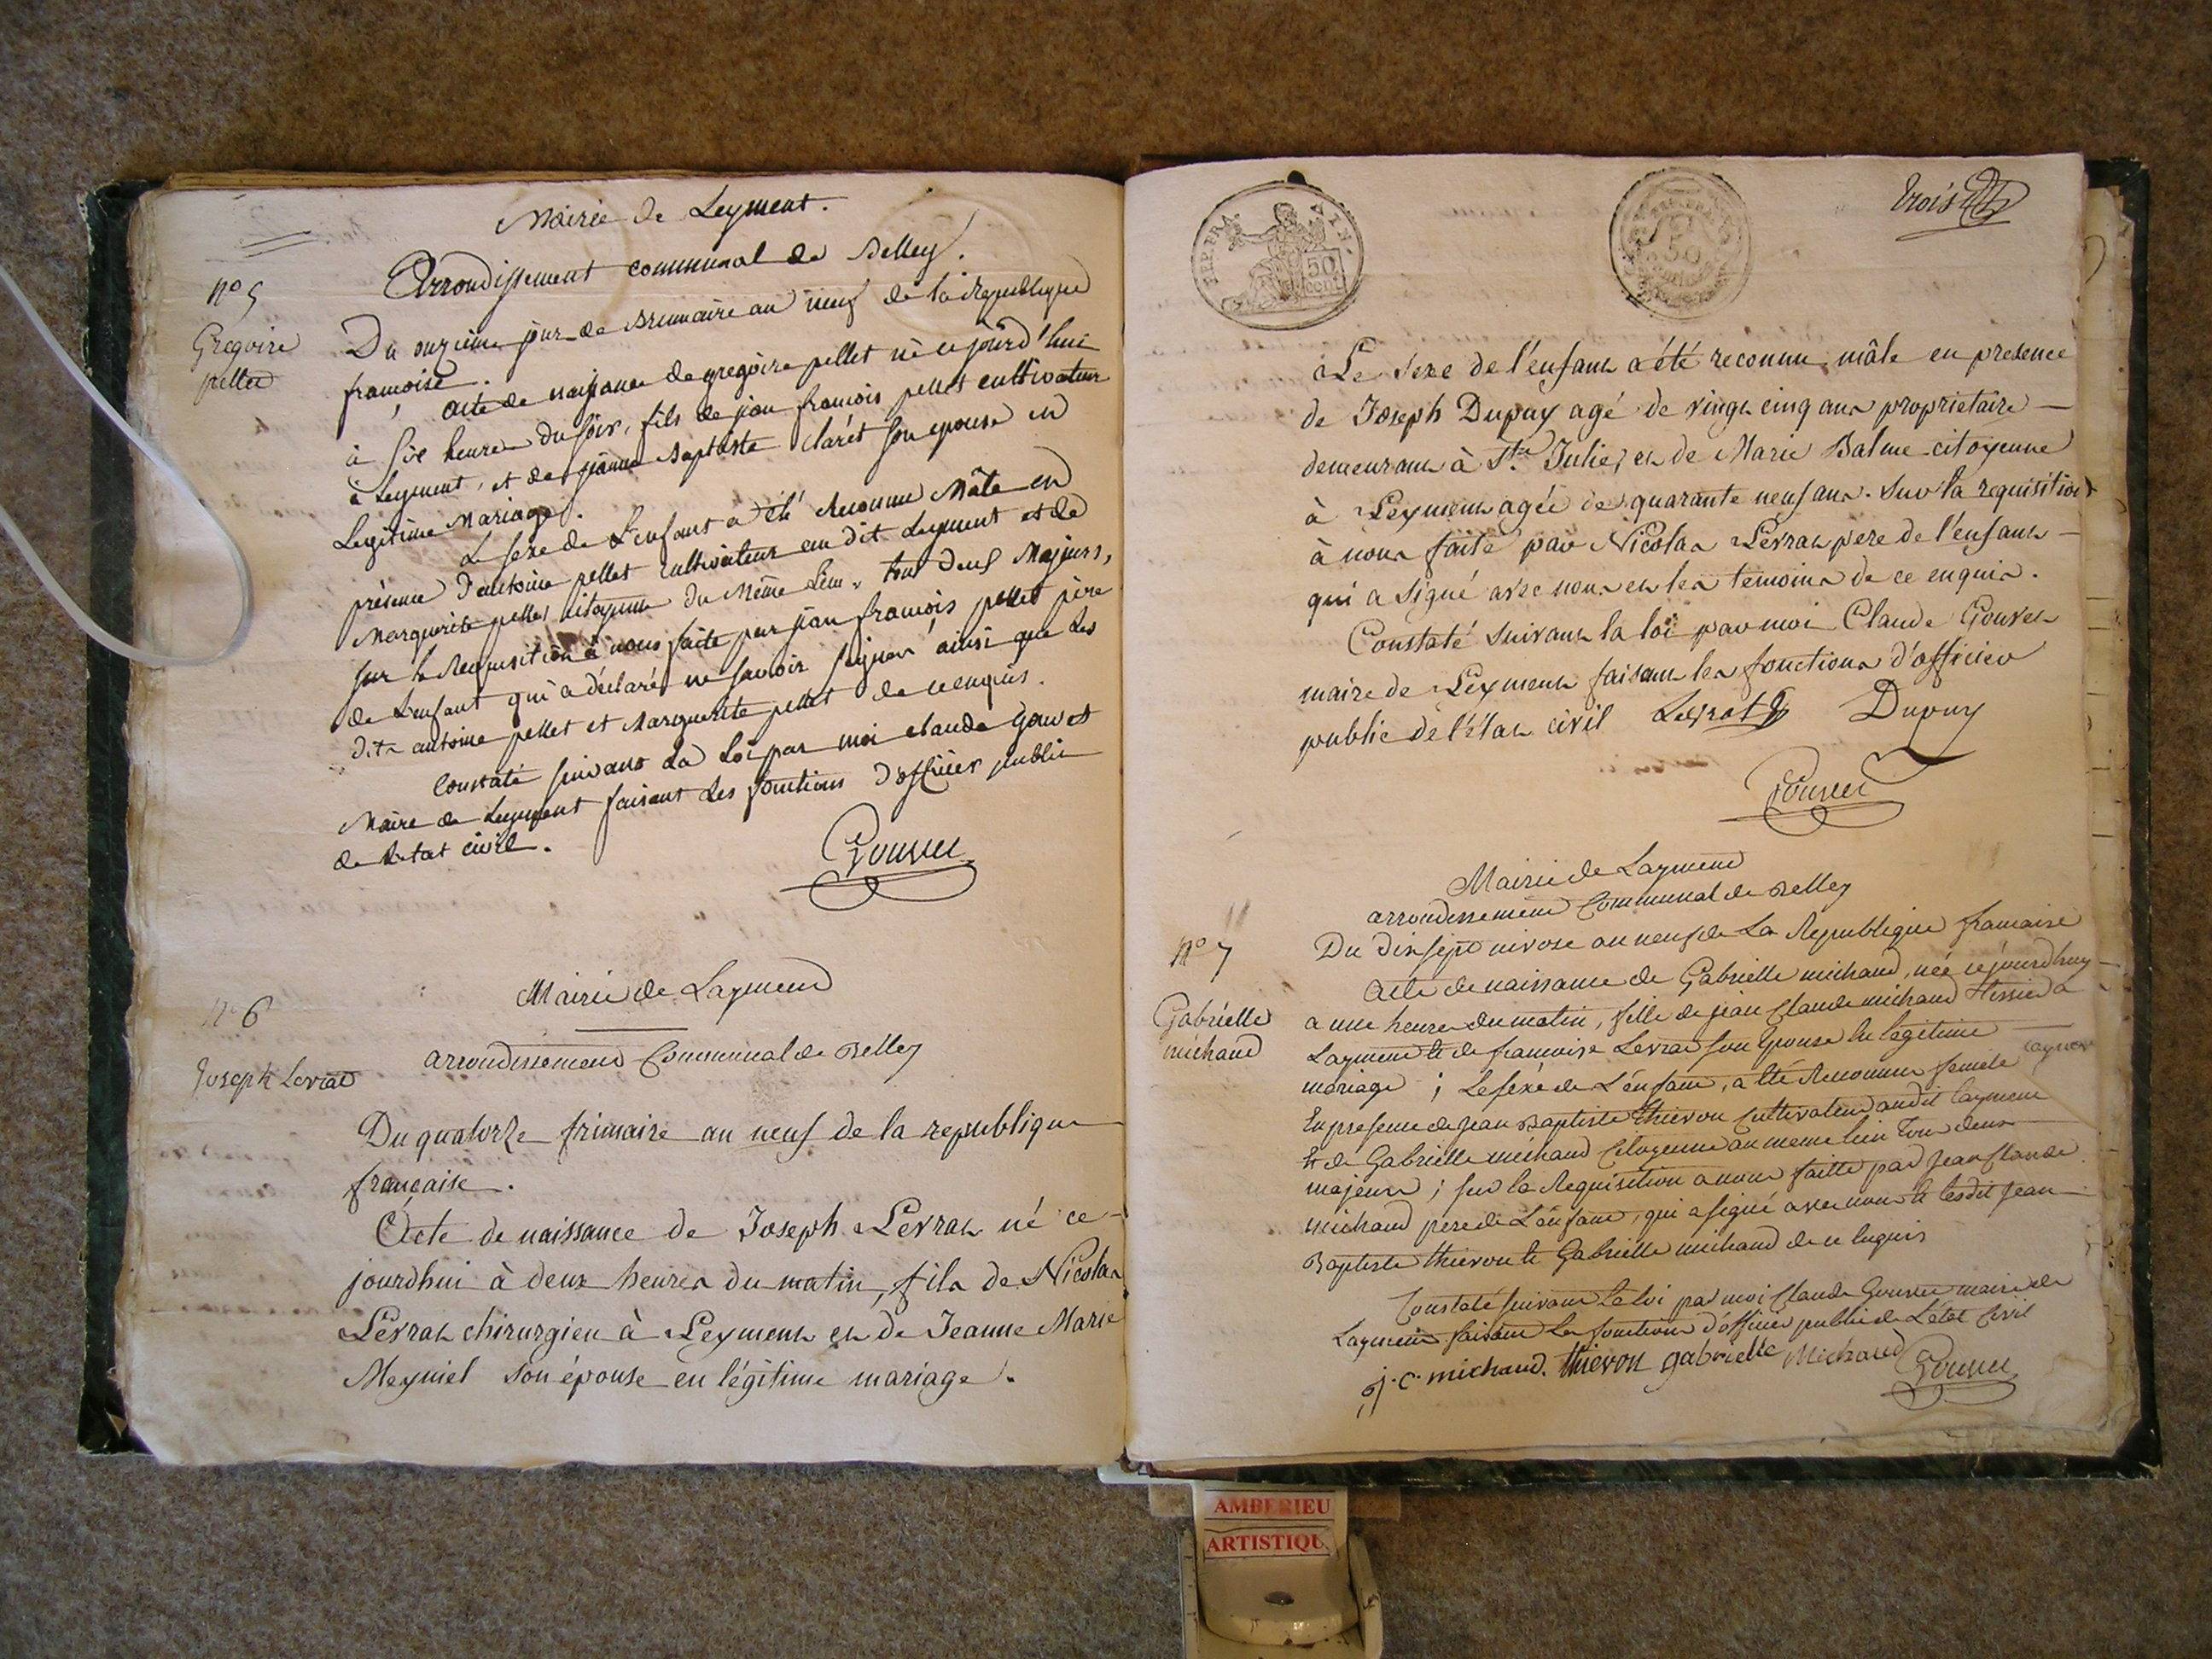 Mairie de Leyment.
Arrondissement communal de Belley.
n° 5
Gregoire
pellet
Du onzième jour de Brumaire an neuf de la Republique
françoise.
Acte de naissance de gregoire pellet né ce jourd'hui
à six heures du soir, fils de jean françois pellet cultivateur
à Leyment, et de jeanne Baptiste Claret son epouse en
Legitime Mariage.
Le sexe de L'enfant a été Reconnu Mâle en
présence d'antoine pellet cultivateur au dit Leyment et de
Marguerite pellet citoyenne du Même Lieu, tous deux Majeurs,
sur la Requisition à nous faite par jean françois pellet père
de L'enfant qui a déclaré ne savoir signer ainsi que Les
dits antoine pellet et Marguerite pellet de ce enquis.
Constaté suivant La Loi par moi claude Gouvet
Maire de Leyment faisant Les fonctions d'officier public
de L'etat civil.
Gouvet
n° 6
Joseph Levrat
Mairie de Layment
arrondissement Communal de Belley
Du quatorze frimaire an neuf de la republique
française.
Acte de naissance de Joseph Levrat né ce
jourdhui à deux heures du matin, fils de Nicolas
Levrat chirurgien à Leyment et de Jeanne Marie
Meyniel son épouse en légitime mariage.
REP. FRA.
50
cent.
50
trois
Le sexe de l'enfant a été reconnu mâle en presence
de Joseph Dupuy agé de vingt cinq ans proprietaire
demeurant à Ste Julie, et de Marie Balme citoyenne
à Leyment agée de quarante neuf ans. Sur la requisition
à nous faite par Nicolas Levrat pere de l'enfant
qui a signé avec nous et les temoins de ce enquis.
Constaté suivant la loi par moi Claude Gouvet
maire de Leyment faisant les fonctions d'officier
public de l'état civil Levrat Dupuy
Gouvet
Mairie de Layment
arrondissement Communal de Belley
n° 7
Gabrielle
michaud
Du dix sept nivose an neuf de La Republique francaise
Acte de naissance de Gabrielle michaud, née cejourdhuy
a une heure du matin, fille de jean Claude michaud tissier a
Layment et de francoise Levrat son Epouse En légitime
mariage ; Le sexe de L'enfant, a été Reconnu femele
En presence de jean Baptiste thievon Cultivateur audit Layment
Et de Gabrielle michaud Citoyenne au meme lieu tous deux
majeurs ; sur la Requisition a nous faitte par jean Claude
michaud pere de L'enfant, qui a signé avec nous et lesdit jean
Baptiste thievon et Gabrielle michaud de ce Enquis
Constaté suivant La loi par moi Claude Gouvet maire de
Layment faisant Les fonctions d'officier public de L'état Civil
j. c. michaud. thievon gabrielle michaud Gouvet
AMBERIEU
ARTISTIQU